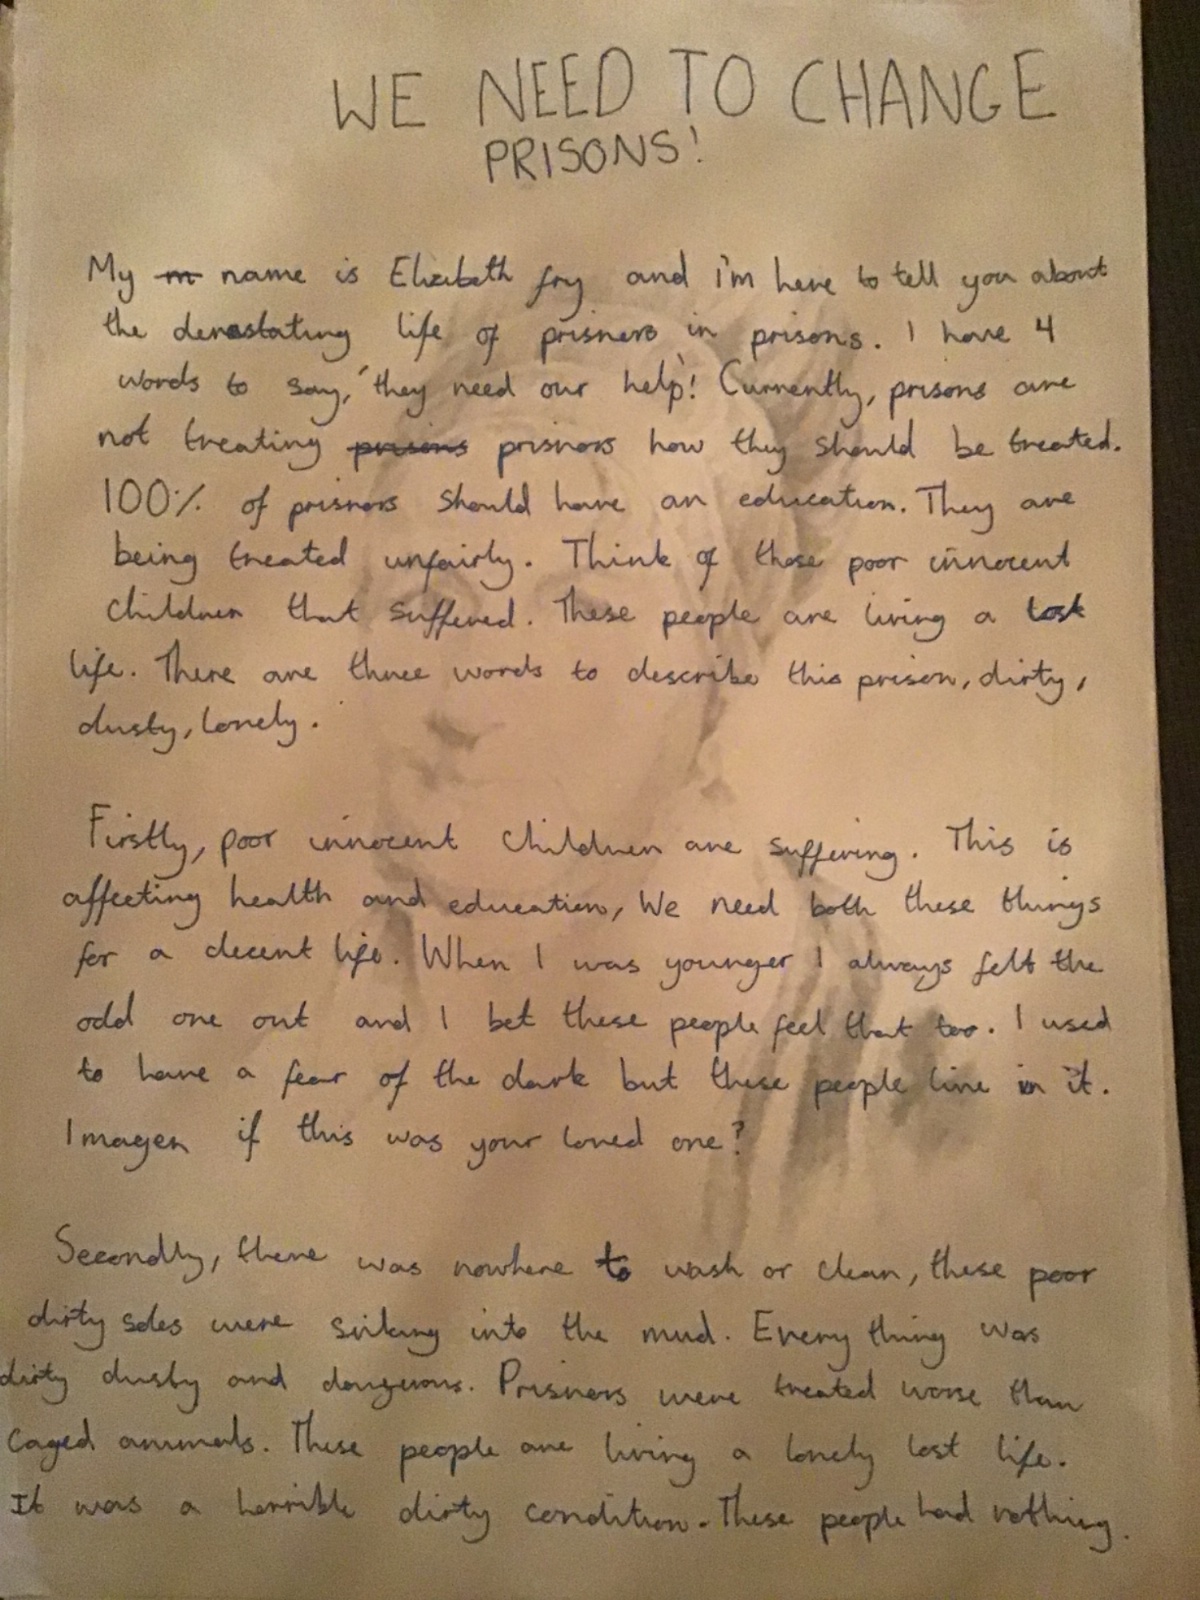 WE NEED TO CHANGE
PRISONS!
My m name is Elizebeth fry and I'm here to tell you about
the devastating life of prisners in prisons. I have 4
words to say, 'they need our help'! Currently, prisons are
not treating prisons prisners how they should be treated.
100% of prisners should have an education. They are
being treated unfairly. Think of those poor innocent
children that suffered. These people are living a lost
life. There are three words to describe this prison, dirty,
dusty, lonely.
Firstly, poor innocent children are suffering. This is
affecting health and education, We need both these things
for a decent life. When I was younger I always felt the
odd one out and I bet these people feel that too. I used
to have a fear of the dark but these people live in it.
Imagen if this was your loved one?
Secondly, there was nowhere to wash or clean, these poor
dirty soles were sinking into the mud. Every thing was
dirty dusty and dangerous. Prisners were treated worse than
caged animals. These people are living a lonely lost life.
It was a horrible dirty condition. These people had nothing.